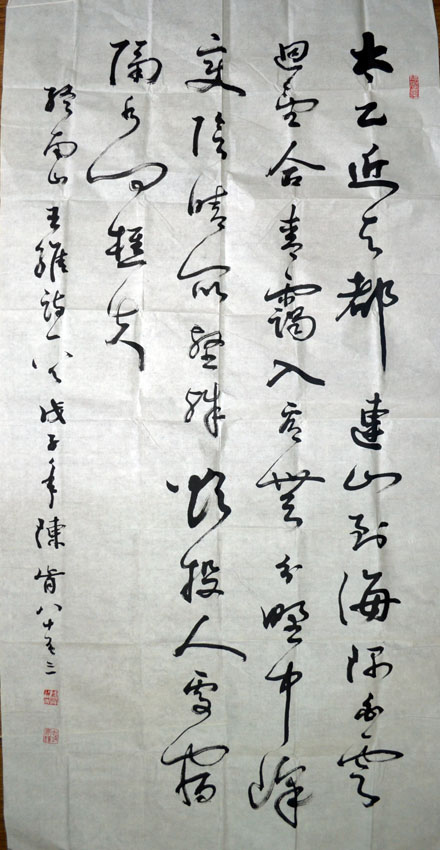 太乙近天都連山到海隅白雲
迴望合青靄入看無分野中峰
變陰晴眾壑殊欲投人處宿
隔水問樵夫
終南山王維詩一首戊子年陳肯八十三